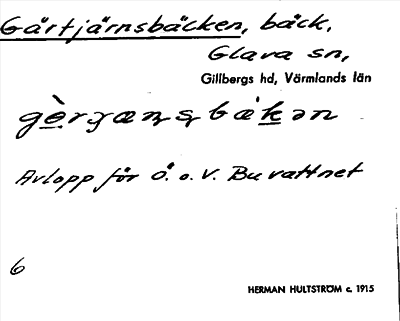 Gårtjärnsbäcken, bäck.
Glava sn,
Gillbergs hd, Värmlands län
Avlopp för Ö. o. V. Buvattnet
6
HERMAN HULTSTRÖM c. 1915